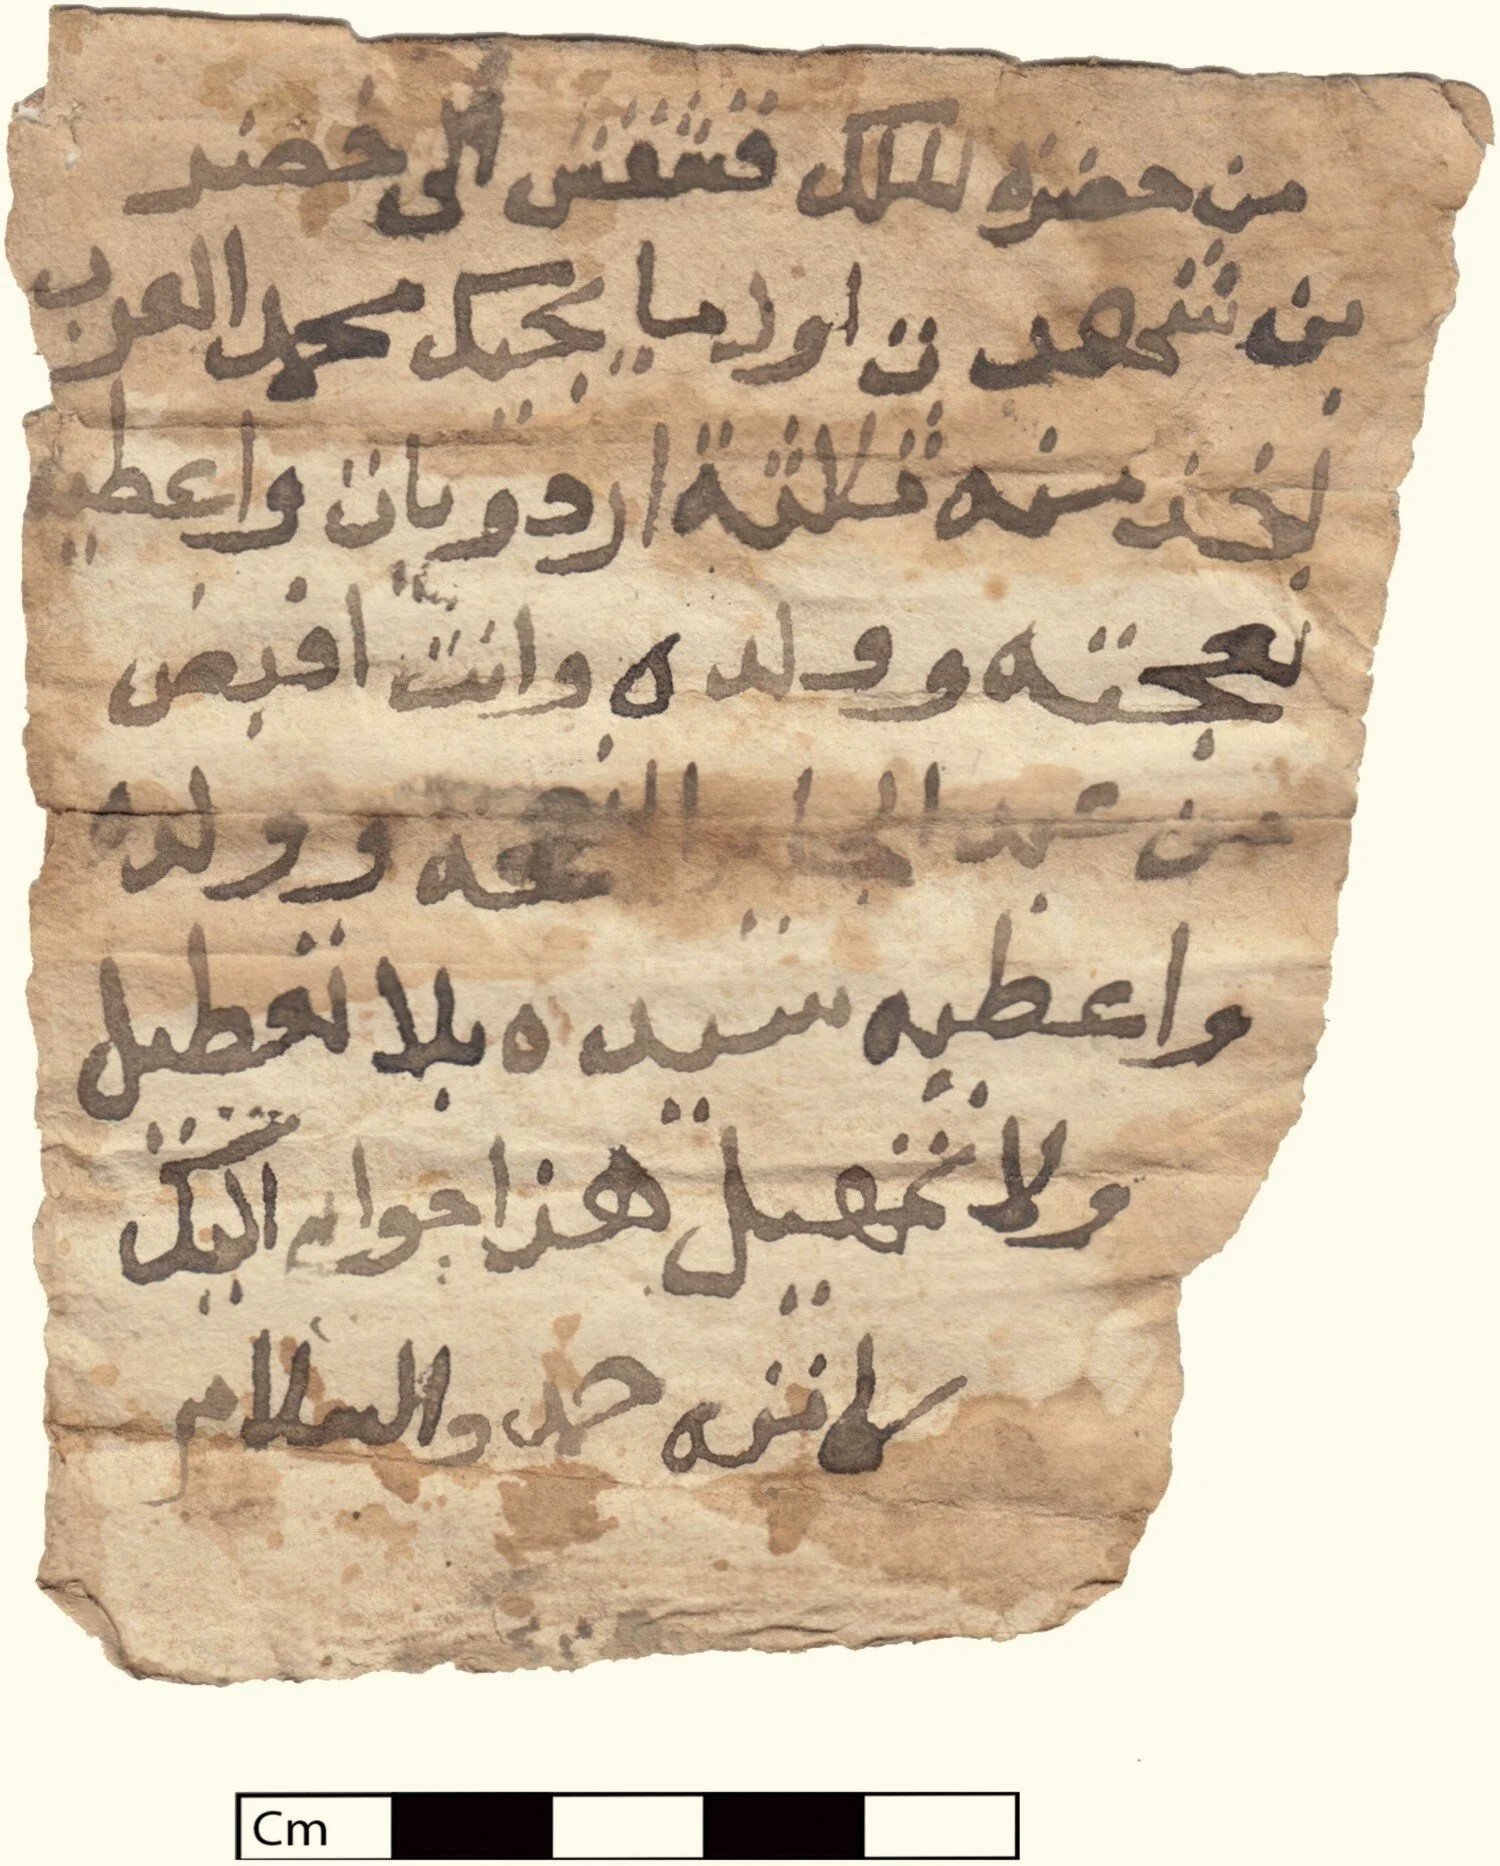 من حضرة الملك قشقش الى خضر
بن شجهدت اول ما يجيك محمد العرب
لخذ منه ثلاثة اردويات واعطيه
نعجته وولده وانت اقبض
من عبد الجابر النعجه وولده
واعطيه سيده بلا تعطيل
ولا تمهيل هذا جواب اليك
كاتبه حمد والسلام
Cm